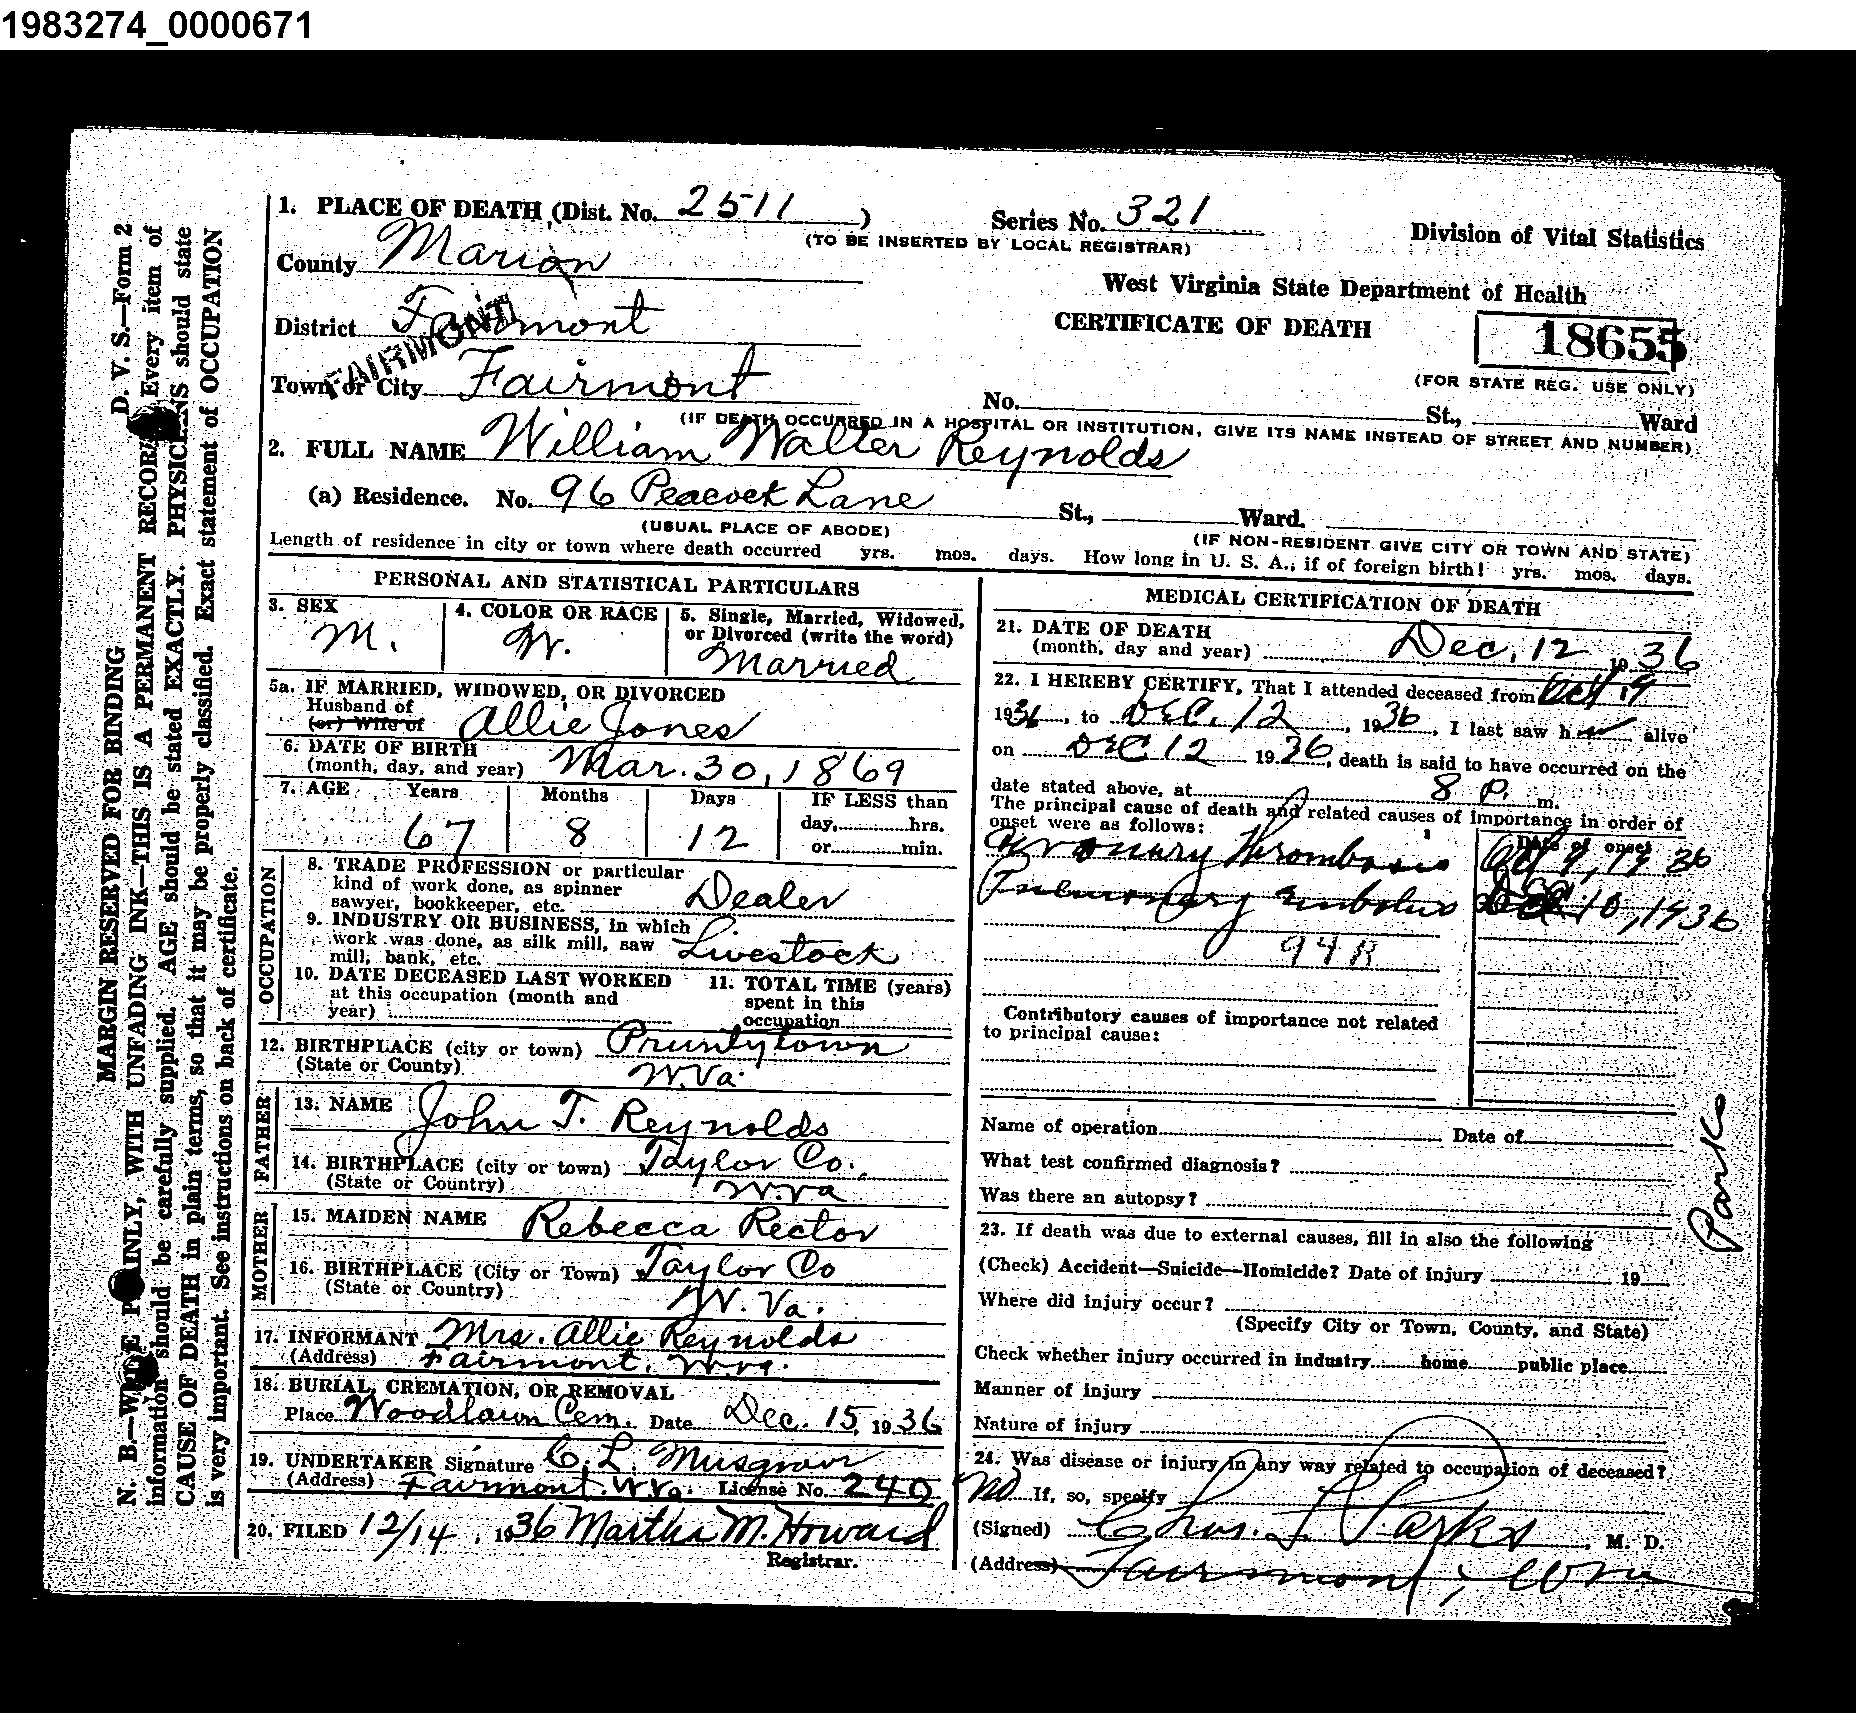 1983274_0000671
1. PLACE OF DEATH (Dist. No. 2511)
Series No. 321
(TO BE INSERTED BY LOCAL REGISTRAR)
Division of Vital Statistics
County Marion
West Virginia State Department of Health
District Fairmont
FAIRMONT
CERTIFICATE OF DEATH
18655
(FOR STATE REG. USE ONLY)
Town or City Fairmont
No. St., Ward
(IF DEATH OCCURRED IN A HOSPITAL OR INSTITUTION, GIVE ITS NAME INSTEAD OF STREET AND NUMBER)
2. FULL NAME William Walter Reynolds
(a) Residence. No. 96 Peacock Lane St., Ward.
(USUAL PLACE OF ABODE)
(IF NON-RESIDENT GIVE CITY OR TOWN AND STATE)
Length of residence in city or town where death occurred yrs. mos. days. How long in U. S. A., if of foreign birth? yrs. mos. days.
PERSONAL AND STATISTICAL PARTICULARS
3. SEX
M.
4. COLOR OR RACE
W.
5. Single, Married, Widowed,
or Divorced (write the word)
Married
5a. IF MARRIED, WIDOWED, OR DIVORCED
Husband of
(or) Wife of Allie Jones
6. DATE OF BIRTH
(month, day, and year) Mar. 30, 1869
7. AGE Years Months Days IF LESS than
67 8 12 day, hrs.
or min.
OCCUPATION
8. TRADE PROFESSION or particular
kind of work done, as spinner
sawyer, bookkeeper, etc. Dealer
9. INDUSTRY OR BUSINESS, in which
work was done, as silk mill, saw
mill, bank, etc. Livestock
10. DATE DECEASED LAST WORKED
at this occupation (month and
year)
11. TOTAL TIME (years)
spent in this
occupation
12. BIRTHPLACE (city or town) Pruntytown
(State or County) W. Va.
FATHER
13. NAME John T. Reynolds
14. BIRTHPLACE (city or town) Taylor Co.,
(State or Country) W. Va
MOTHER
15. MAIDEN NAME Rebecca Rector
16. BIRTHPLACE (City or Town) Taylor Co
(State or Country) W. Va.
17. INFORMANT Mrs. Allie Reynolds
(Address) Fairmont, W. Va.
18. BURIAL, CREMATION, OR REMOVAL
Place Woodlawn Cem. Date Dec. 15, 1936
19. UNDERTAKER Signature C. L. Musgrove
(Address) Fairmont W Va. License No. 240
20. FILED 12/14, 1936 Martha M. Howard
Registrar.
MEDICAL CERTIFICATION OF DEATH
21. DATE OF DEATH
(month, day and year) Dec. 12 1936
22. I HEREBY CERTIFY, That I attended deceased from Oct 19
1936, to Dec. 12, 1936, I last saw him alive
on Dec 12 1936, death is said to have occurred on the
date stated above, at 8 P. m.
The principal cause of death and related causes of importance in order of
onset were as follows:
Date of onset
Coronary Thrombosis Oct 9, 1936
Pulmonary Embolus Dec 10, 1936
94 B
Contributory causes of importance not related
to principal cause:
Name of operation Date of
What test confirmed diagnosis?
Was there an autopsy?
23. If death was due to external causes, fill in also the following
(Check) Accident—Suicide—Homicide? Date of injury 19
Where did injury occur?
(Specify City or Town, County, and State)
Check whether injury occurred in industry home public place
Manner of injury
Nature of injury
24. Was disease or injury in any way related to occupation of deceased?
No If, so, specify
(Signed) Chas. L. Parks, M. D.
(Address) Fairmont, W Va
Parks
MARGIN RESERVED FOR BINDING
D. V. S.—Form 2
N. B.—WRITE PLAINLY, WITH UNFADING INK—THIS IS A PERMANENT RECORD. Every item of
information should be carefully supplied. AGE should be stated EXACTLY. PHYSICIANS should state
CAUSE OF DEATH in plain terms, so that it may be properly classified. Exact statement of OCCUPATION
is very important. See instructions on back of certificate.